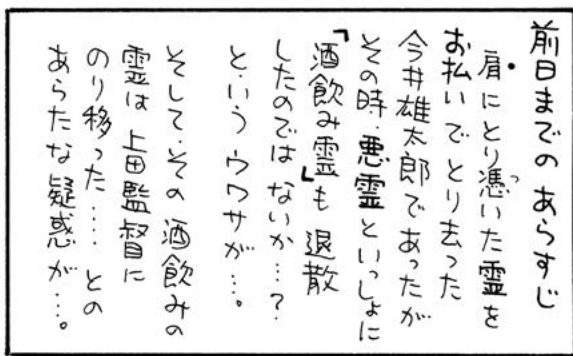 前日までの あらすじ
肩にとり憑いた霊を
お払いで とり去った
今井雄太郎であったが
その時、悪霊といっしょに
「酒飲み霊」も 退散
したのでは ないか…?
という ウワサが…。
そして、その 酒飲みの
霊は 上田監督に
のり移った…… との
あらたな疑惑が…。